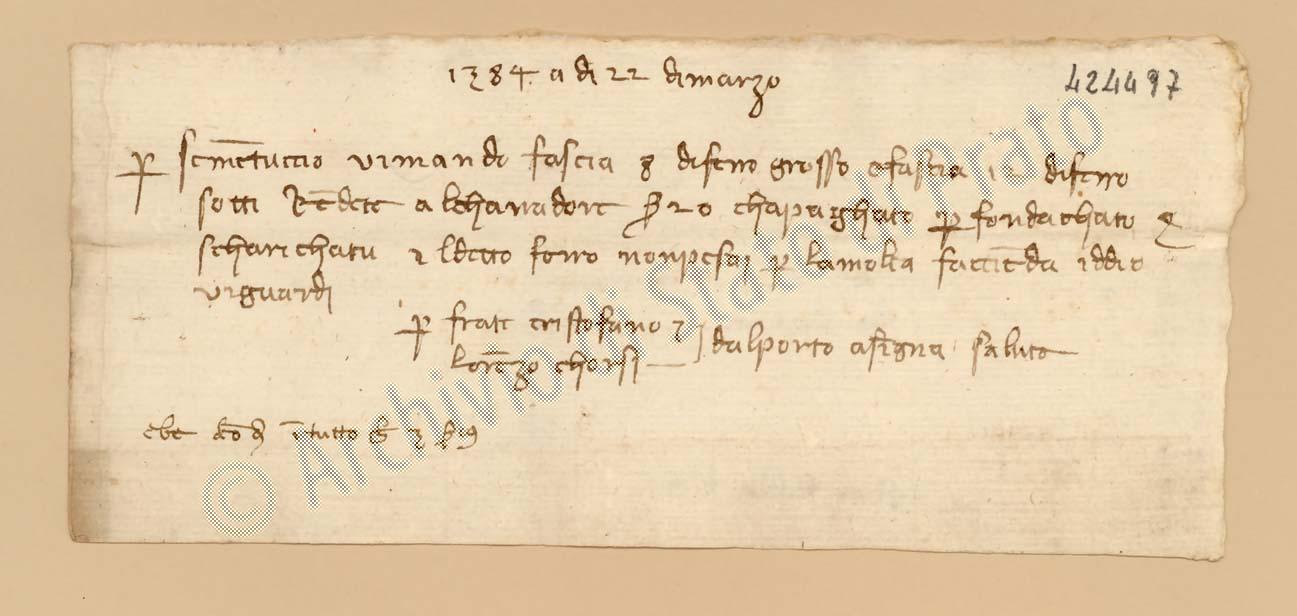 1384 a dì 22 di marzo
424497
P somettuccio vi mando fascia 8 di ferro grosso e fascia 12 di ferro
sotti Redete al charradore s 20 cha paghato p fondachato e
scharichatu e l detto ferro non pesai p la molta faccieda iddio
vi guardi
p frate cristofano e
lorezo chorsi
dal porto a signa salute
ebe i tutto
© Archivio di Stato di Prato